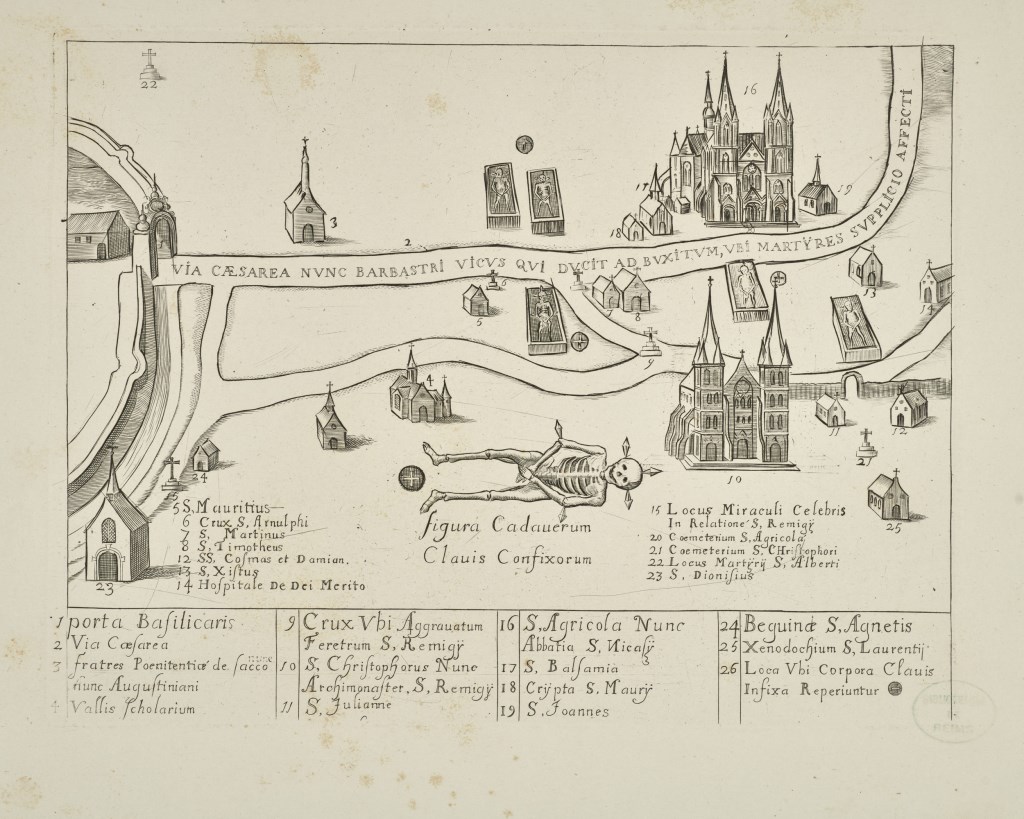 22
16
17
19
18
3
2
VIA CÆSAREA NVNC BARBASTRI VICVS QVI DVCIT AD BVXITVM, VBI MARTŸRES SVPPLICIO AFFECTI
6
5
7
8
13
14
9
4
11
12
21
24
15
10
25
23
5 S, Mauritius
6 Crux S, Arnulphi
7 S, Martinus
8 S, Timotheus
12 SS, Cosmas et Damian,
13 S, Xistus
14 Hospitale De Dei Merito
figura Cadauerum
Clauis Confixorum
15 Locus Miraculi Celebris
In Relatione S, Remigÿ
20 Coemeterium S, Agricola
21 Coemeterium S, CHristophori
22 Locus Martÿrÿ S, Alberti
23 S, Dionisius
1 porta Basilicaris
2 Via Cæsarea
3 fratres Poenitentiæ de sacco nunc
nunc Augustiniani
4 Vallis scholarium
9 Crux Vbi Aggrauatum
Feretrum S, Remigÿ
10 S, Christophorus Nunc
Archimonaster, S, Remigÿ
11 S, Julianne
16 S, Agricola Nunc
Abbatia S, Nicasÿ
17 S, Balsamia
18 Crÿpta S, Maurÿ
19 S, Joannes
24 Beguinæ S, Agnetis
25 Xenodochium S, Laurentij
26 Loca Vbi Corpora Clauis
Infixa Reperiuntur